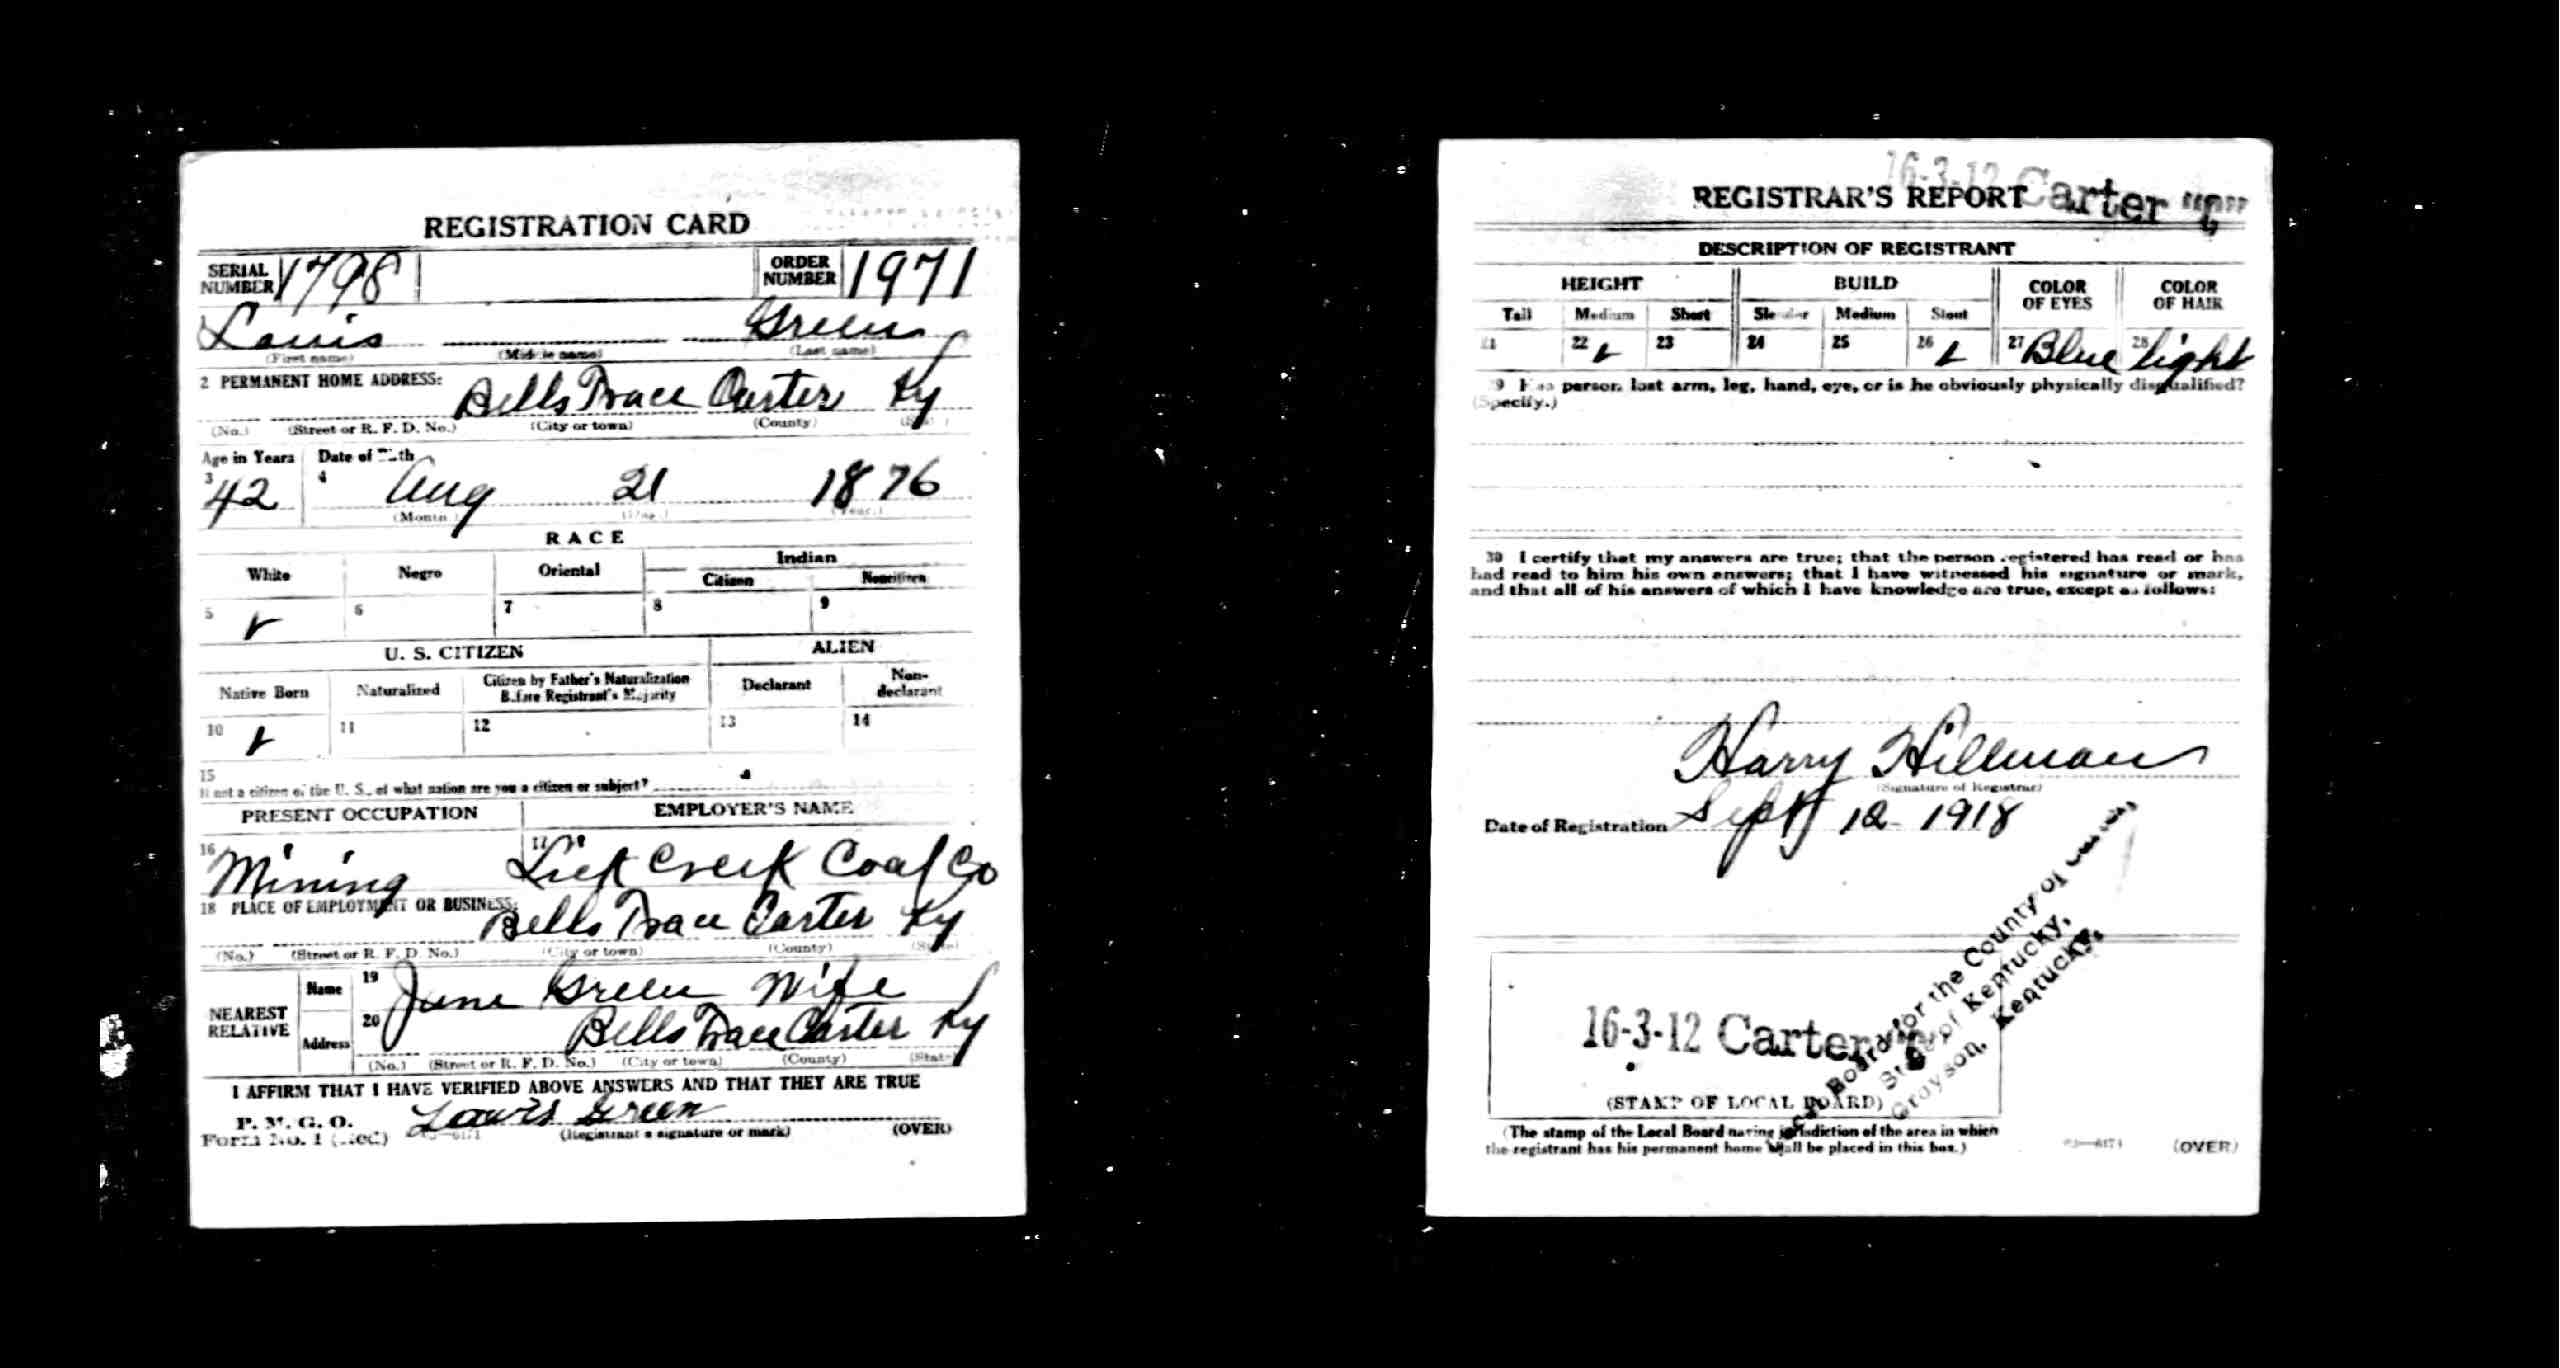 REGISTRATION CARD
SERIAL NUMBER 1798 ORDER NUMBER 1971
Louis Green
(First name) (Middle name) (Last name)
2 PERMANENT HOME ADDRESS:
Bells Trace Carter Ky
(No.) (Street or R. F. D. No.) (City or town) (County) (State)
Age in Years Date of Birth
3 42 4 Aug 21 1876
(Month.) (Day.) (Year.)
RACE
White Negro Oriental Indian
Citizen Noncitizen
5 6 7 8 9
U. S. CITIZEN ALIEN
Native Born Naturalized Citizen by Father's Naturalization Before Registrant's Majority Declarant Non-declarant
10 11 12 13 14
15
If not a citizen of the U. S., of what nation are you a citizen or subject?
PRESENT OCCUPATION EMPLOYER'S NAME
16 Mining 17 Lick Creek Coal Co
18 PLACE OF EMPLOYMENT OR BUSINESS:
Bells Trace Carter Ky
(No.) (Street or R. F. D. No.) (City or town) (County) (State)
NEAREST RELATIVE Name 19 June Green Wife
Address 20 Bells Trace Carter Ky
(No.) (Street or R. F. D. No.) (City or town) (County) (State)
I AFFIRM THAT I HAVE VERIFIED ABOVE ANSWERS AND THAT THEY ARE TRUE
P. M. G. O.
Form No. 1 (Red) Louis Green
(Registrant's signature or mark) (OVER)
16-3-12 Carter "C"
REGISTRAR'S REPORT
DESCRIPTION OF REGISTRANT
HEIGHT BUILD COLOR OF EYES COLOR OF HAIR
Tall Medium Short Slender Medium Stout
21 22 23 24 25 26 27 Blue 28 light
29 Has person lost arm, leg, hand, eye, or is he obviously physically disqualified?
(Specify.)
30 I certify that my answers are true; that the person registered has read or has
had read to him his own answers; that I have witnessed his signature or mark,
and that all of his answers of which I have knowledge are true, except as follows:
Harry Hillman
(Signature of Registrar)
Date of Registration Sept 12 1918
Board for the County of
State of Kentucky,
Grayson, Kentucky,
16-3-12 Carter
(STAMP OF LOCAL BOARD)
(The stamp of the Local Board having jurisdiction of the area in which
the registrant has his permanent home shall be placed in this box.)
(OVER)